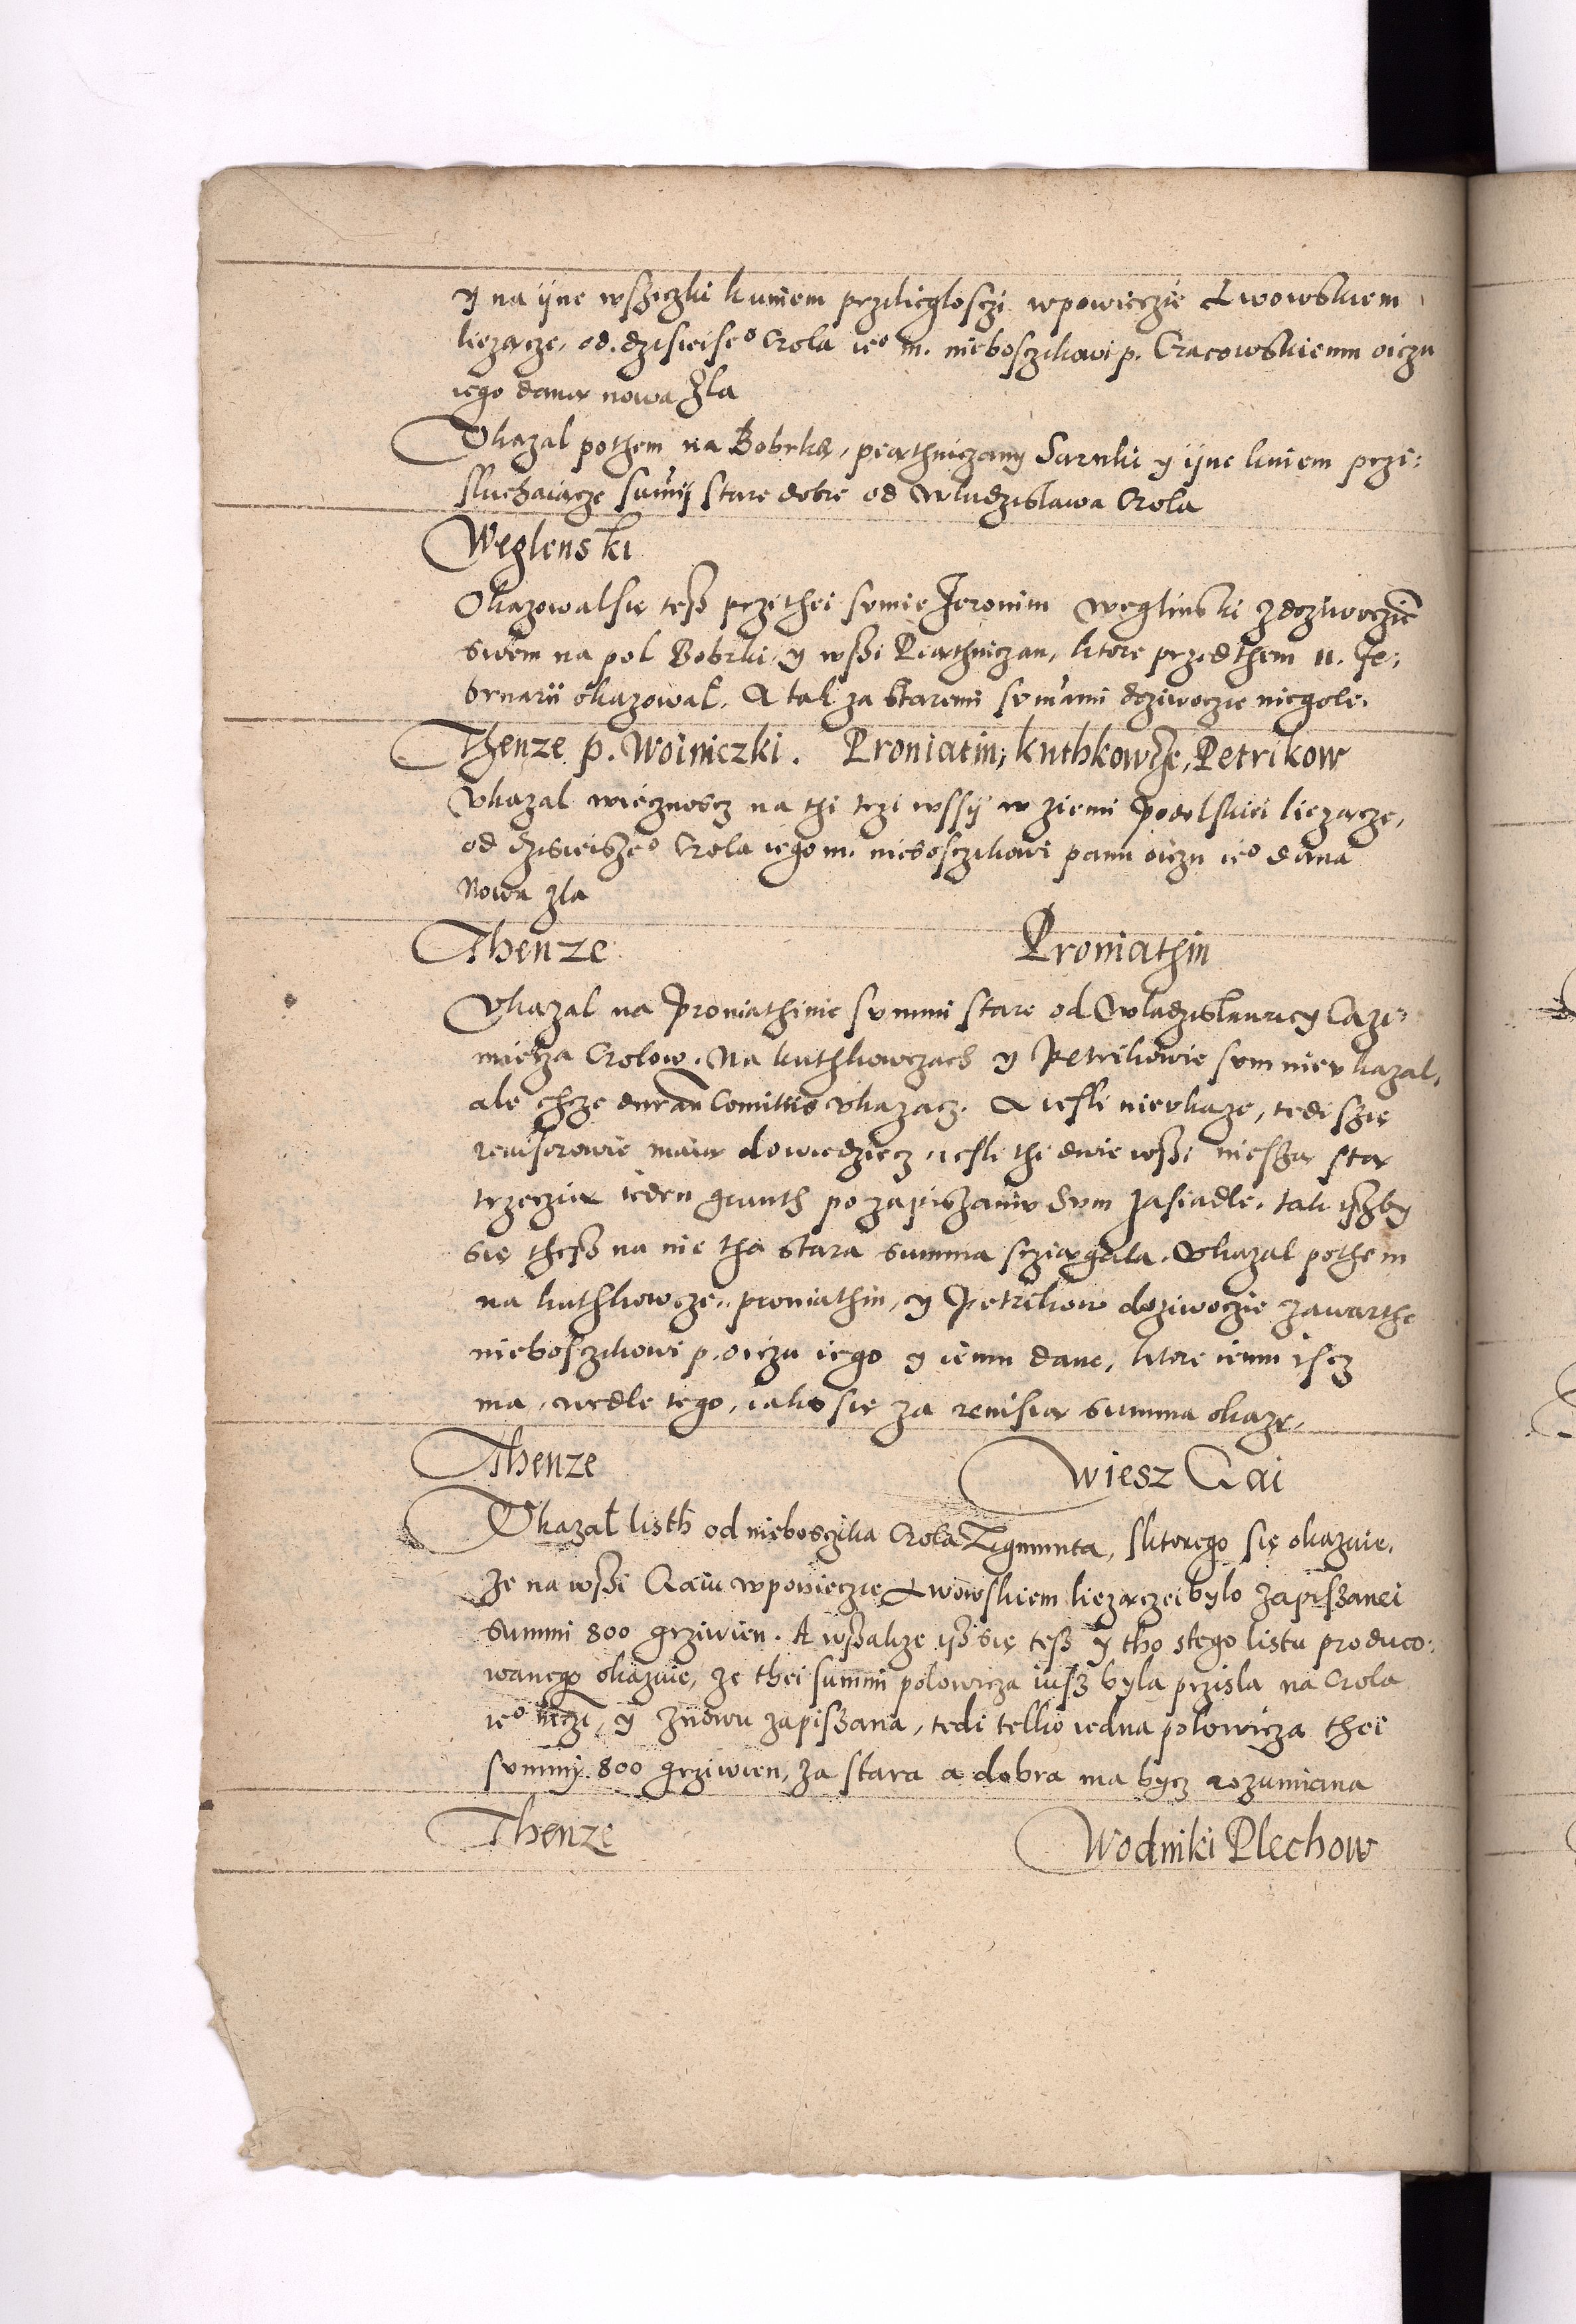 y na ijne wsziczki kuniem przilieglosczi wpowieczie Lwowskiem
liezacze, od dzisieise° Crola ie° m. nieboszczikowi p. Cracowskiemu oiczu
iego dana nowa zla
Ukazal pothem na Bobrka, piathniczany Sarnki y ijne kniem przi:
sluchaiącze sumij stare dobre od Wladzislawa Crola
Weglenski
Okazowalsie tesz przithei sumie Jeronim Weglinski zdoziwoczie
swem na pol Bobrki y wsszi Piathniczan, ktore przedthem 11. Fe:
bruarii okazowal. A tak za staremi summami doziwoczie niegole.
Thenze p. Woiniczki. Proniatin, kuthkowcze, Petrikow
Ukazal wiecznoscz na thi trzi wssij w ziemi podolskiei liezacze,
od dzisieisze° Crola iego m. nieboszczikowi panu oiczu ie° dana
Nowa zla
Thenze Proniathin
Ukazal na Proniathinie summi stare od Wladzislawa y Cazi:
mierza Crolow. Na kuthkowczach y Petrikowie sum nieukazal,
ale chcze duran Comittiis ukazacz. A iesli nieukaze, tedi szie
reuisorowie maia dowiedziecz, iesli thi dwie wsszi niesza sta
trzeczia ieden grunth po zapiszaniu Sum zasiadle. tak iszby
sie thesz na nie tha stara summa scziagala. Ukazal pothem
na kuthkowcze, proniathin, y Petrikow doziwoczie zawarthe
nieboszczikowi p. oiczu iego y iemu dane, ktore iemu iscz
ma, wedle tego, iako sie za reuisia summa okaze.
Thenze wiesz Gai
Ukazal listh od nieboszczika Crola Zigmunta, sktorego się okazuie,
ze na wsszi Gaiu wpowieczie Lwowskiem liezaczei bylo zapiszanei
summi 800 grziwien. A wszakze isz się tesz y tho stego listu produco:
wanego okazuie, ze thei summi polowicza iusz byla przisla na Crola
ie° mczi, y znowu zapiszana, tedi telko iedna polowicza thei
summy 800 grziwien, za stara a dobra ma bycz rozumiana
Thenze Wodniki Plechow